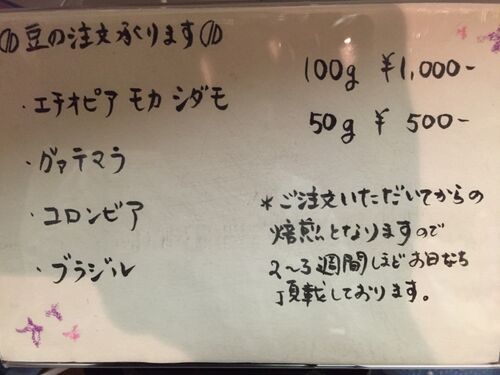 豆の注文承ります
・エチオピア モカ シダモ
・ガァテマラ
・コロンビア
・ブラジル
100g ¥1,000-
50g ¥500-
*ご注文いただいてからの
焙煎となりますので
2〜3週間ほどお日にち
頂戴しております。